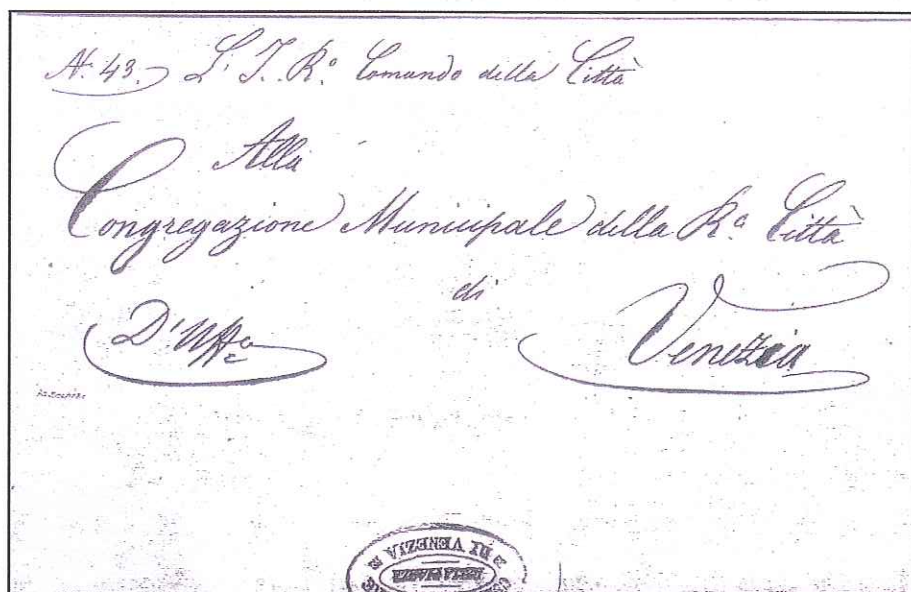 N. 43. L' I. Rº. Comando della Città
Alla
Congregazione Municipale della Rª. Città
di
D'Uffº Venezia
DI VENEZIA